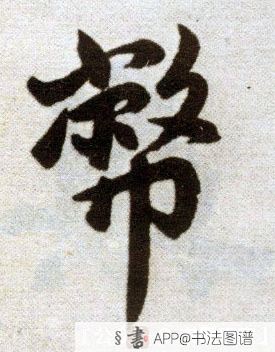 幣
§書 APP@书法图谱